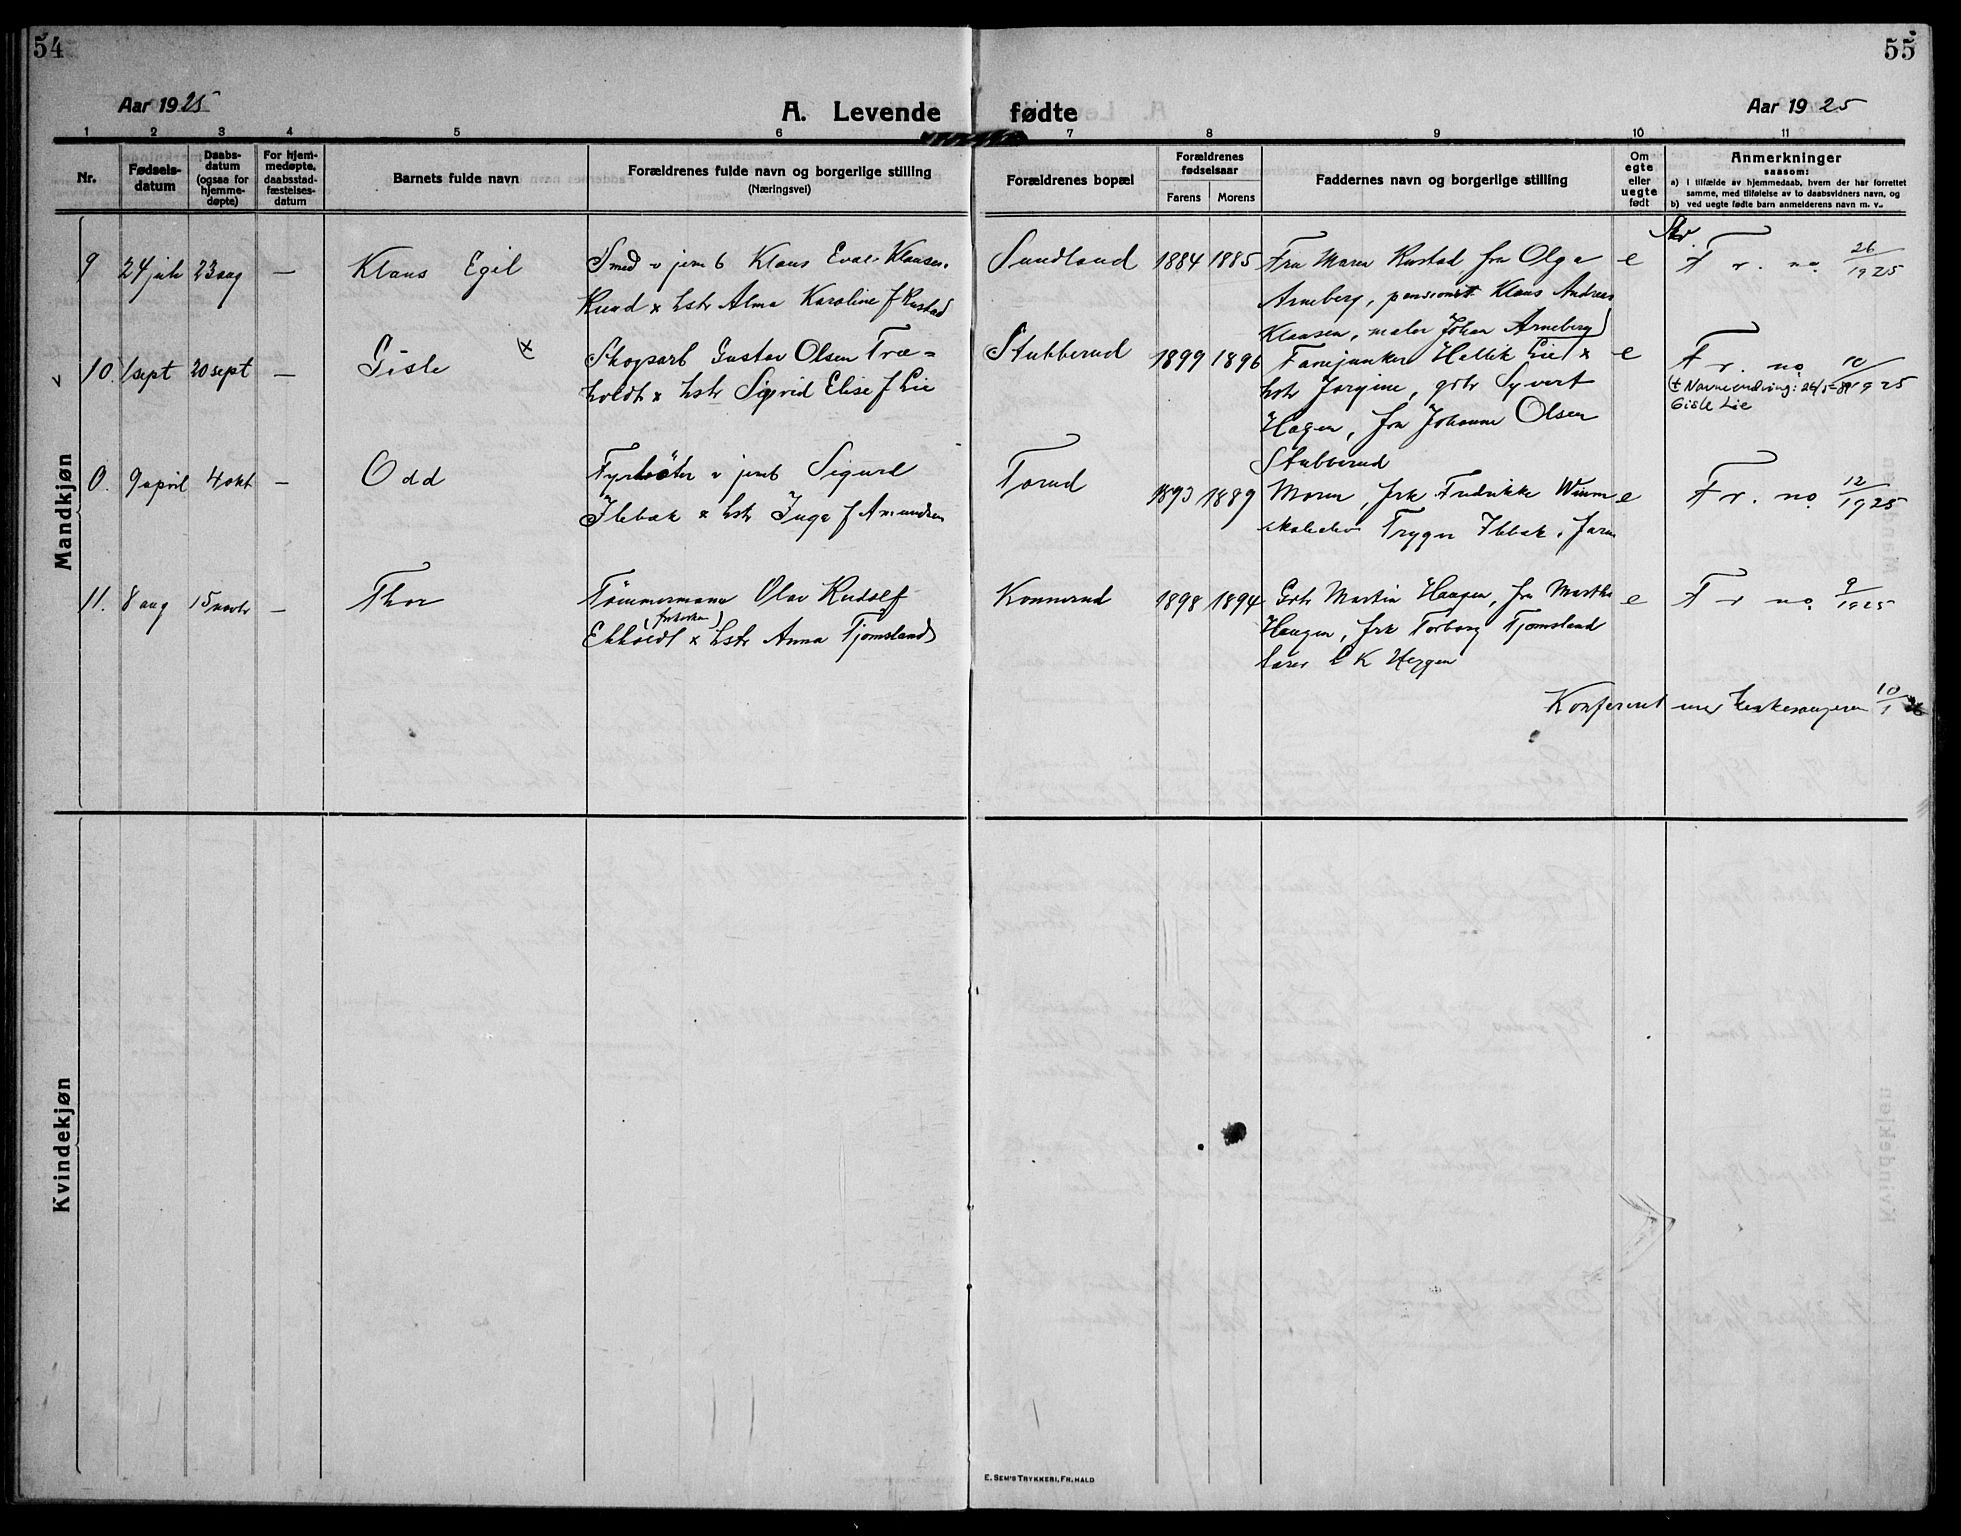 54
55
Aar 1925
A. Levende fødte
Aar 1925
1 2 3 4 5 6 7 8 9 10 11
Nr.
Fødsels-
datum
Daabs-
datum
(ogsaa for
hjemme-
døpte)
For hjem-
medøpte,
daabsstad-
fæstelses-
datum
Barnets fulde navn
Forældrenes fulde navn og borgerlige stilling
(Næringsvei)
Forældrenes bopæl
Forældrenes
fødselsaar
Farens Morens
Faddernes navn og borgerlige stilling
Om
egte
eller
uegte
født
Anmerkninger
saasom:
a) I tilfælde av hjemmedaab, hvem der har forrettet
samme, med tilføielse av to daabsvidners navn, og
b) ved uegte fødte barn anmelderens navn m. v..
Mandkjøn
9 24 juli 23 aug — Klaus Egil
Smed v jernb Klaus Evald Klausen
Ruud x hstr Alma Karoline f Rustad
Sundland 1884 1885
Fru Maren Rustad fru Olga
Arneberg, pensionist Klaus Andreas
Klausen, maler Johan Arneberg
e
F. r. no 26/1925
10. 1 sept 20 sept — Gisle x
Skogsarb Gustav Olsen Træ=
holdt x hstr Sigrid Elise f Lie
Stubberud 1899 1896
Fanejunker Hellik Lie x
hstr Jørgine, grbr Syvert
Hagen, fru Johanne Olsen
Stubberud
e
F. r. no 10/1925
(+ Navneendring:
Gisle Lie
0. 9 april 4 okt — Odd
Fyrbøter v jernb Sigurd
Ilebæk x hstr Inga f Amundsen
Torud 1893 1889
Moren, frk Fredrikke
Trygve Ilebæk
e
F. r. no 12/1925
11. 8 aug 15 novbr — Thor
Tømmermann Olav Rudolf
Ekholdt x hstr Anna Tjomsland
Konnerud 1898 1894
Grbr Martin Haugen, fru Marthe
Haugen, frk Torborg Tjomsland
lærer L K Heggen
e
F. r. no 9/1925
Konfereret med kirkesangeren 10/1 26
Kvindekjøn
E. SEM'S TRYKKERI, FR.HALD